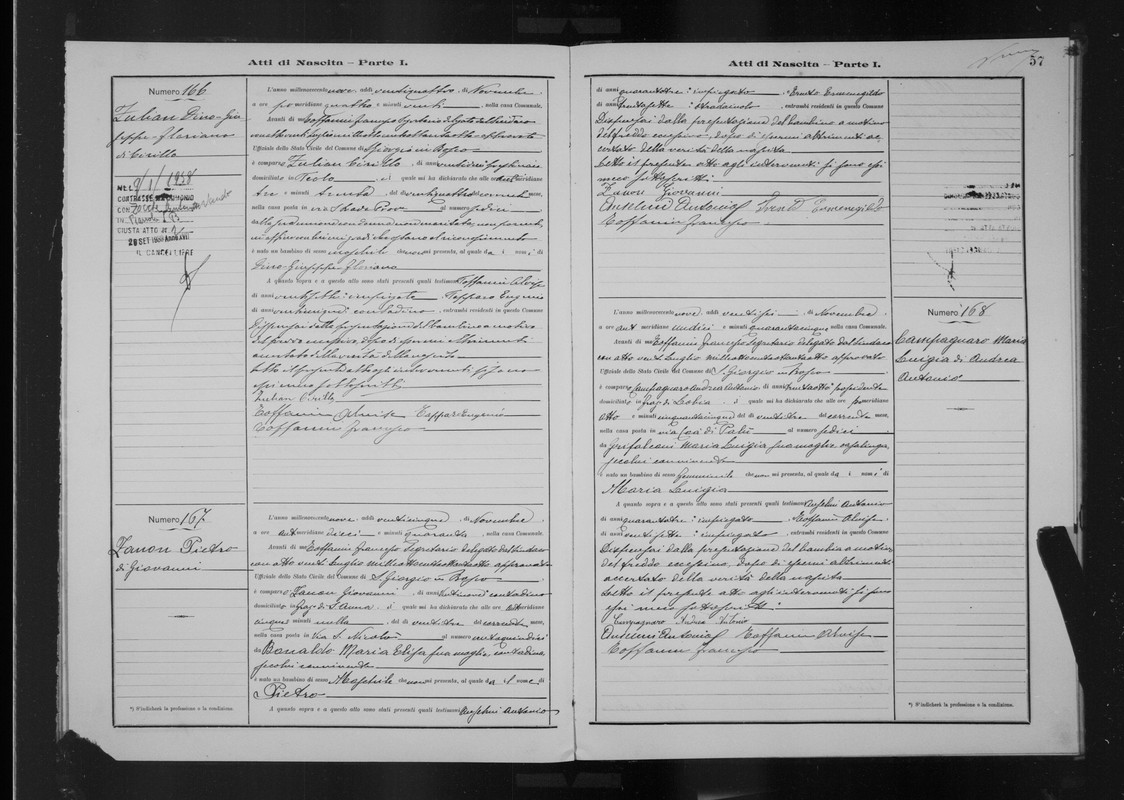 Atti di Nascita – Parte I.
Numero 166
Zulian Dino-Giu
seppe-Floriano
di Cirillo
N. 1. 9/1/1938
CONTRASSE MATRIMONIO
CON
IN
GIUSTA ATTO N.
28 SET 1938
IL CANCELLIERE
L'anno millenovecento nove, addì ventiquattro di Novembre,
a ore po meridiane quattro e minuti venti, nella casa Comunale.
Avanti di me Toffanin Francesco Segretario delegato dal Sindaco
con atto venti Luglio milleottocentottantaotto approvato
Uffiziale dello Stato Civile del Comune di S. Giorgio in Bosco
è comparso Zulian Cirillo, di anni
domiciliato in Teolo, il quale mi ha dichiarato che alle ore anti meridiane
tre e minuti trenta, del dì ventiquattro del corrente mese,
nella casa posta in via al numero sedici
da
è nato un bambino di sesso maschile che non mi presenta, al quale dà i nomi di
Dino-Giuseppe-Floriano
A quanto sopra e a questo atto sono stati presenti quali testimoni Toffanin Alvise
di anni ventisette impiegato, Tappari Eugenio
di anni contadino, entrambi residenti in questo Comune
Dispensai dalla presentazione del bambino a motivo
del freddo eccessivo, dopo di essermi altrimenti
accertato della verità della nascita
Letto il presente atto agli intervenuti si sono
essi meco sottoscritti
Zulian Cirillo
Toffanin Alvise Tappari Eugenio
Toffanin Francesco
Numero 167
Zanon Pietro
di Giovanni
L'anno millenovecento nove, addì venticinque di Novembre,
a ore anti meridiane dieci e minuti quaranta, nella casa Comunale.
Avanti di me Toffanin Francesco Segretario delegato dal Sindaco
con atto venti Luglio milleottocentottantaotto approvato
Uffiziale dello Stato Civile del Comune di S. Giorgio in Bosco
è comparso Zanon Giovanni, di anni contadino
domiciliato in Fraz. di S. Anna, il quale mi ha dichiarato che alle ore anti meridiane
cinque e minuti nulla, del dì ventitre del corrente mese,
nella casa posta in Via S. Nicolò al numero centoquindici
da Bonaldo Maria Elisa sua moglie contadina
secolui convivente
è nato un bambino di sesso Maschile che non mi presenta, al quale dà il nome di
Pietro
A quanto sopra e a questo atto sono stati presenti quali testimoni Anselmi Antonio
*) S'indicherà la professione o la condizione.
Atti di Nascita – Parte I.
57
di anni quarantotre impiegato, e Trento Ermenegildo
di anni trentasette stradaiolo, entrambi residenti in questo Comune
Dispensai dalla presentazione del bambino a motivo
del freddo eccessivo, dopo di essermi altrimenti ac
certato della verità della nascita
Letto il presente atto agli intervenuti si sono essi
meco sottoscritti
Zanon Giovanni
Anselmi Antonio Trento Ermenegildo
Toffanin Francesco
Numero 168
Campagnaro Maria
Luigia di Andrea
Antonio
L'anno millenovecento nove, addì ventisei di Novembre,
a ore anti meridiane undici e minuti quarantacinque, nella casa Comunale.
Avanti di me Toffanin Francesco Segretario delegato dal Sindaco
con atto venti Luglio milleottocentottantaotto approvato
Uffiziale dello Stato Civile del Comune di S. Giorgio in Bosco
è comparso Campagnaro Andrea Antonio, di anni trentaotto possidente
domiciliato in Fraz. di Lobia, il quale mi ha dichiarato che alle ore po meridiane
otto e minuti cinquantacinque, del dì ventitre del corrente mese,
nella casa posta in via Cà di Patù al numero sedici
da Grifalconi Maria Luigia sua moglie casalinga
secolui convivente
è nato un bambino di sesso femminile che non mi presenta, al quale dà i nomi di
Maria Luigia
A quanto sopra e a questo atto sono stati presenti quali testimoni Anselmi Antonio
di anni quarantotre impiegato, Toffanin Alvise
di anni ventisette impiegato, entrambi residenti in questo Comune
Dispensai dalla presentazione del bambina a motivo
del freddo eccessivo, dopo di essermi altrimenti
accertato della verità della nascita
Letto il presente atto agli intervenuti si sono
essi meco sottoscritti
Campagnaro Andrea Antonio
Anselmi Antonio Toffanin Alvise
Toffanin Francesco
*) S'indicherà la professione o la condizione.